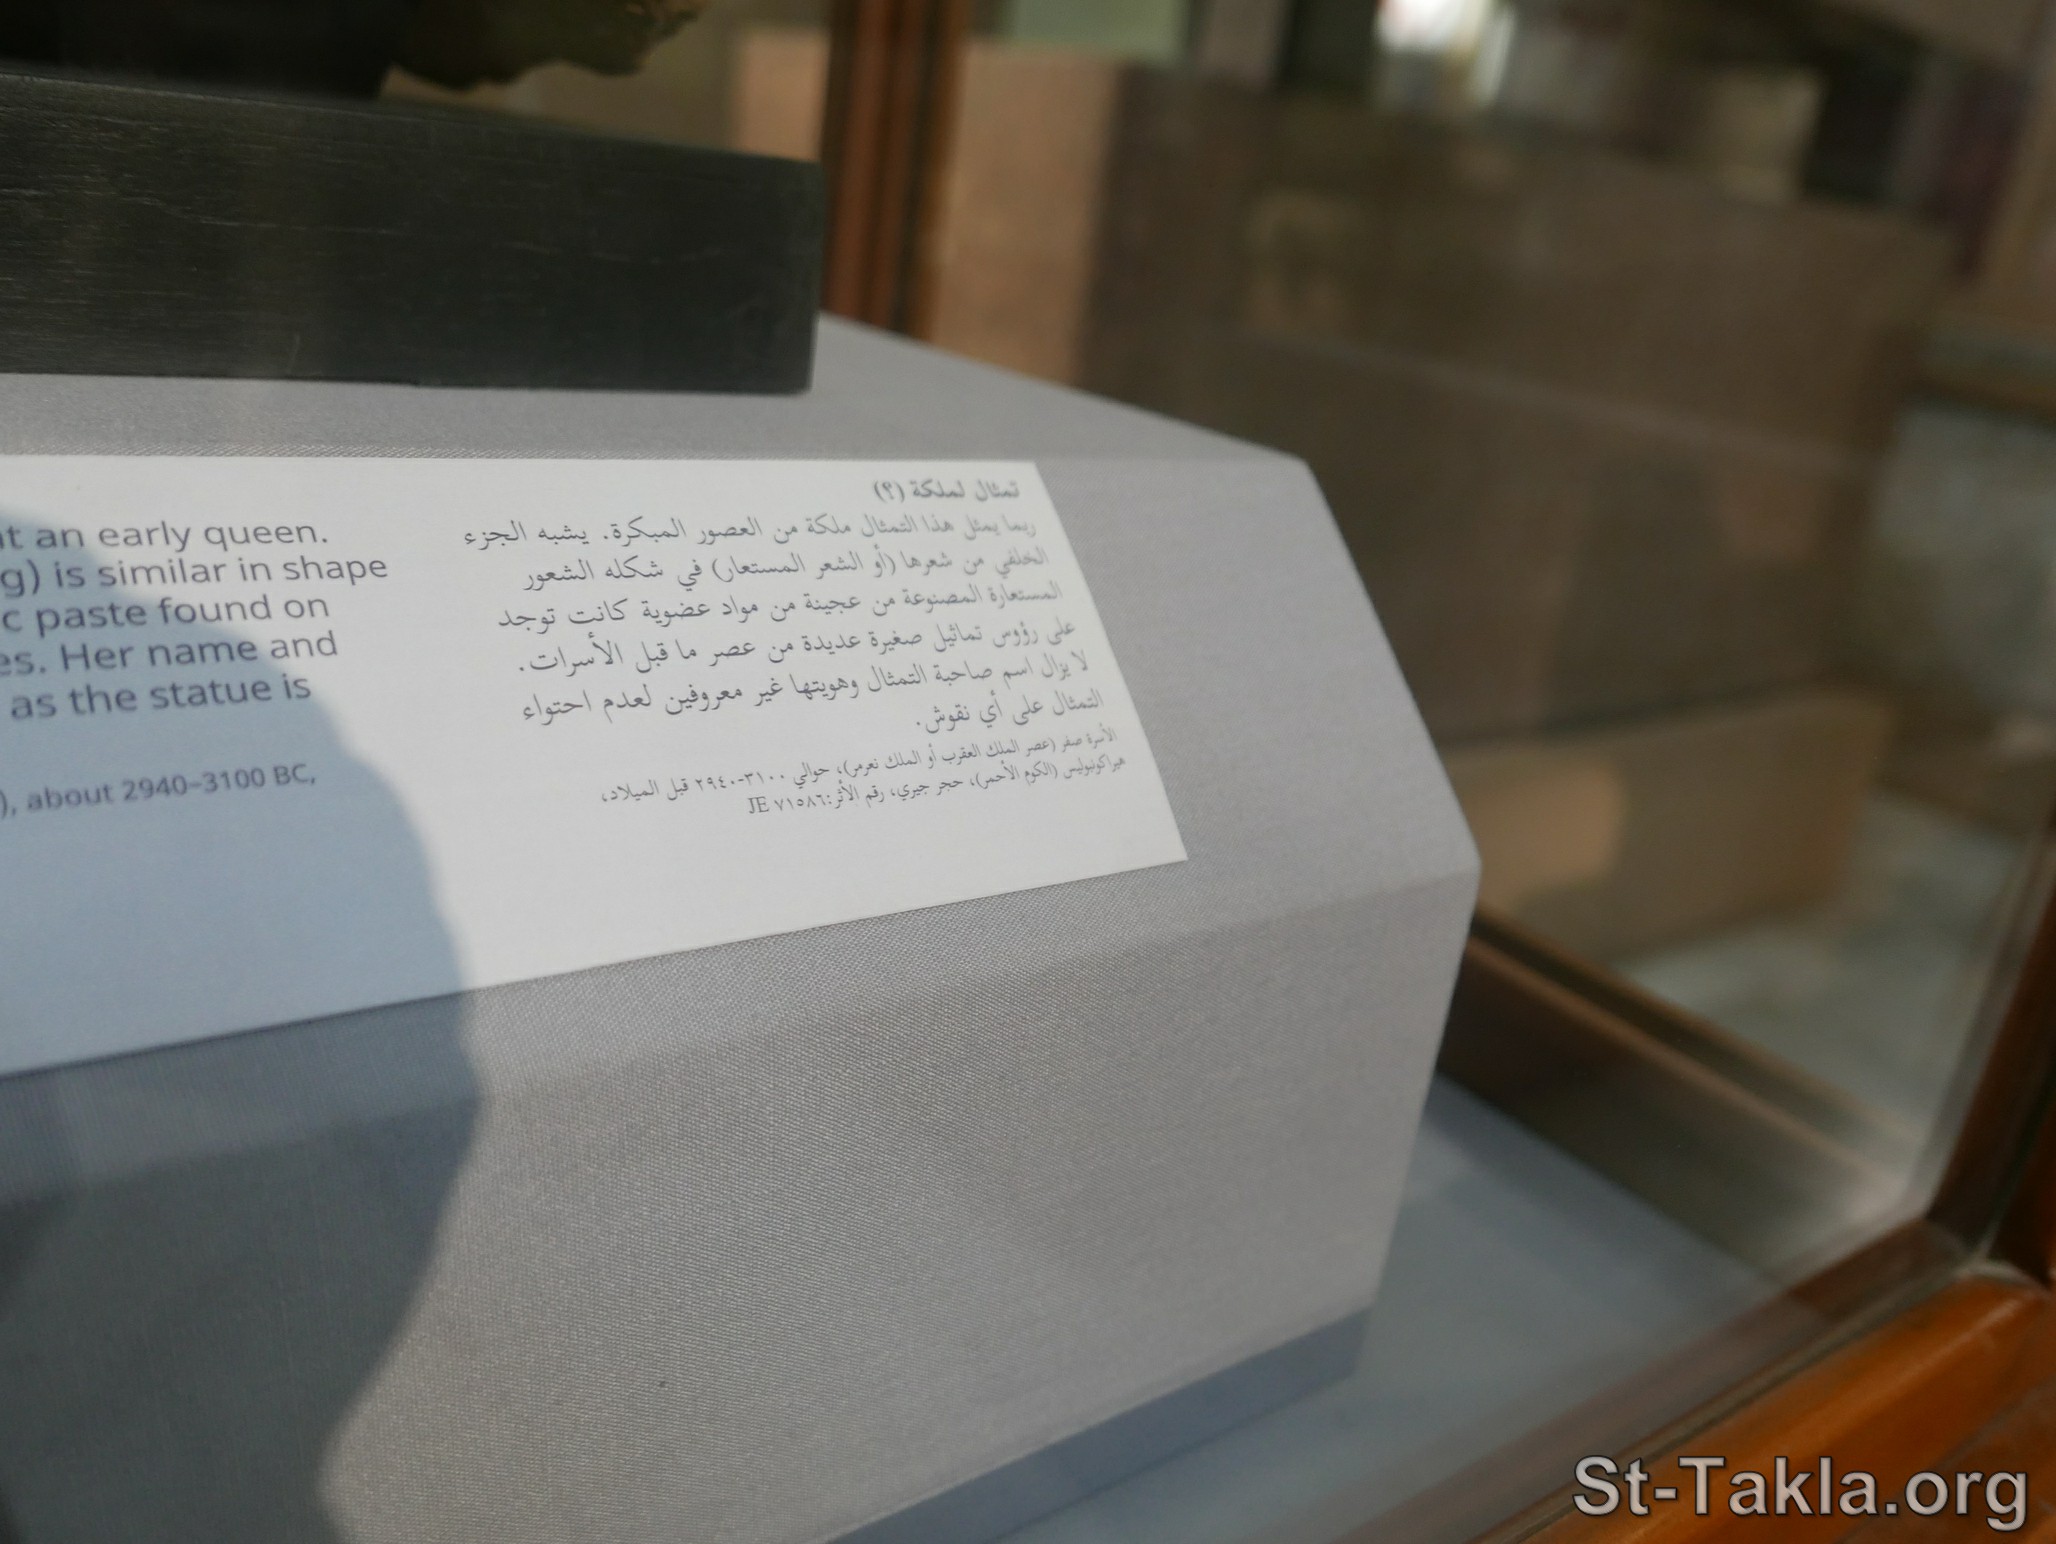 at an early queen.
g) is similar in shape
c paste found on
es. Her name and
as the statue is
), about 2940–3100 BC,
تمثال لملكة (؟)
ربما يمثل هذا التمثال ملكة من العصور المبكرة. يشبه الجزء
الخلفي من شعرها (أو الشعر المستعار) في شكله الشعور
المستعارة المصنوعة من عجينة من مواد عضوية كانت توجد
على رؤوس تماثيل صغيرة عديدة من عصر ما قبل الأسرات.
لا يزال اسم صاحبة التمثال وهويتها غير معروفين لعدم احتواء
التمثال على أي نقوش.
الأسرة صفر (عصر الملك العقرب أو الملك نعرمر)، حوالي ٣١٠٠-٢٩٤٠ قبل الميلاد،
هيراكونبوليس (الكوم الأحمر)، حجر جيري، رقم الأثر: JE ٧١٥٨٦
St-Takla.org